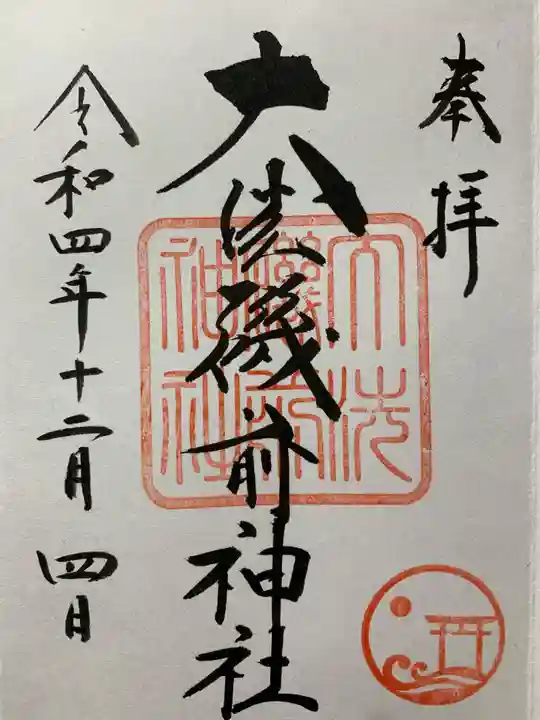 奉拝
大洗磯前神社
令和四年十二月四日
大洗
磯前
神社